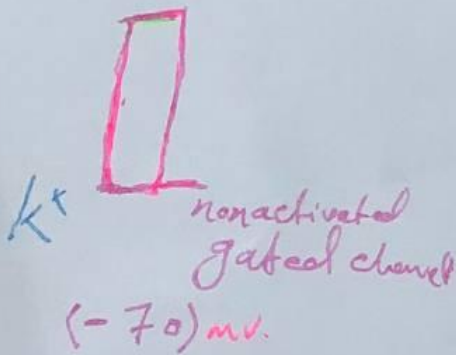 K+
nonactivated
gated channel
(-70) mv.